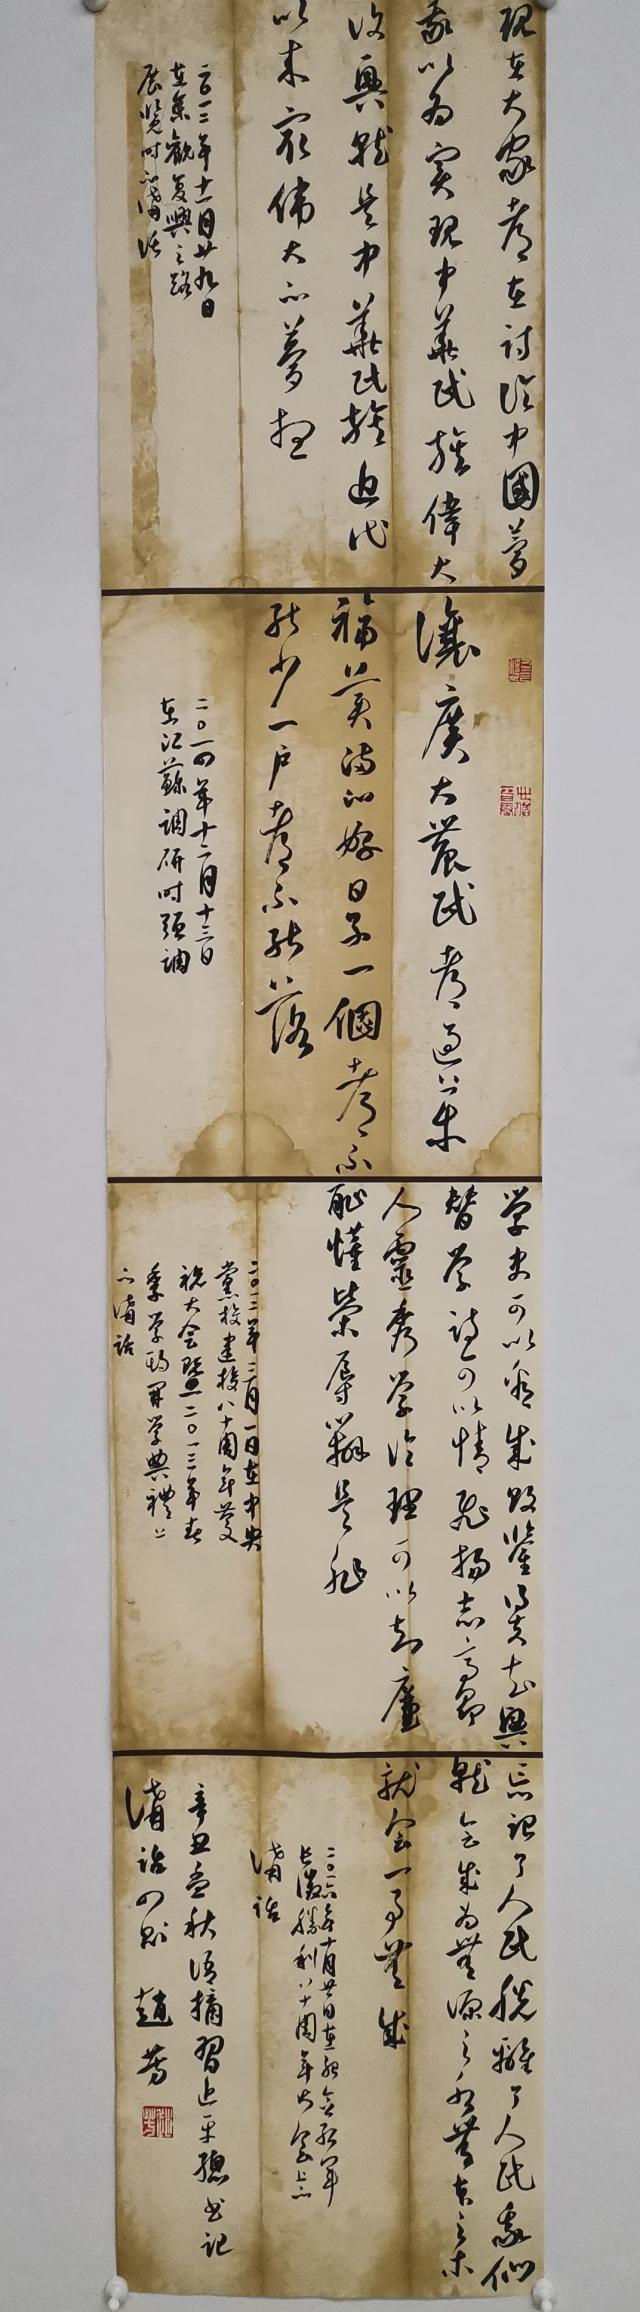 现在大家都在讨论中國夢
我以为实现中華民族偉大
复興就是中華民族近代
以来最伟大的夢想
二〇一二年十一月廿九日
在参觀复興之路
展览时的講话
让廣大農民都过上幸
福美满的好日子一個都不
能少一户都不能落
二〇一四年十二月十三日
在江蘇調研时强調
学史可以看成败鉴得失知興
替学詩可以情飞揚志高昂
人靈秀学伦理可以知廉
耻懂榮辱辨是非
二〇一三年三月一日在中央
黨校建校八十周年慶
祝大会暨二〇一三年春
季学期開学典禮上
的講話
忘记了人民脱離了人民我们
就会成为無源之水無本之木
就会一事無成
二〇一六年十月廿一日在纪念红军
长征勝利八十周年大会上的
講話
辛丑孟秋语摘習近平總书记
講話四则 趙芳